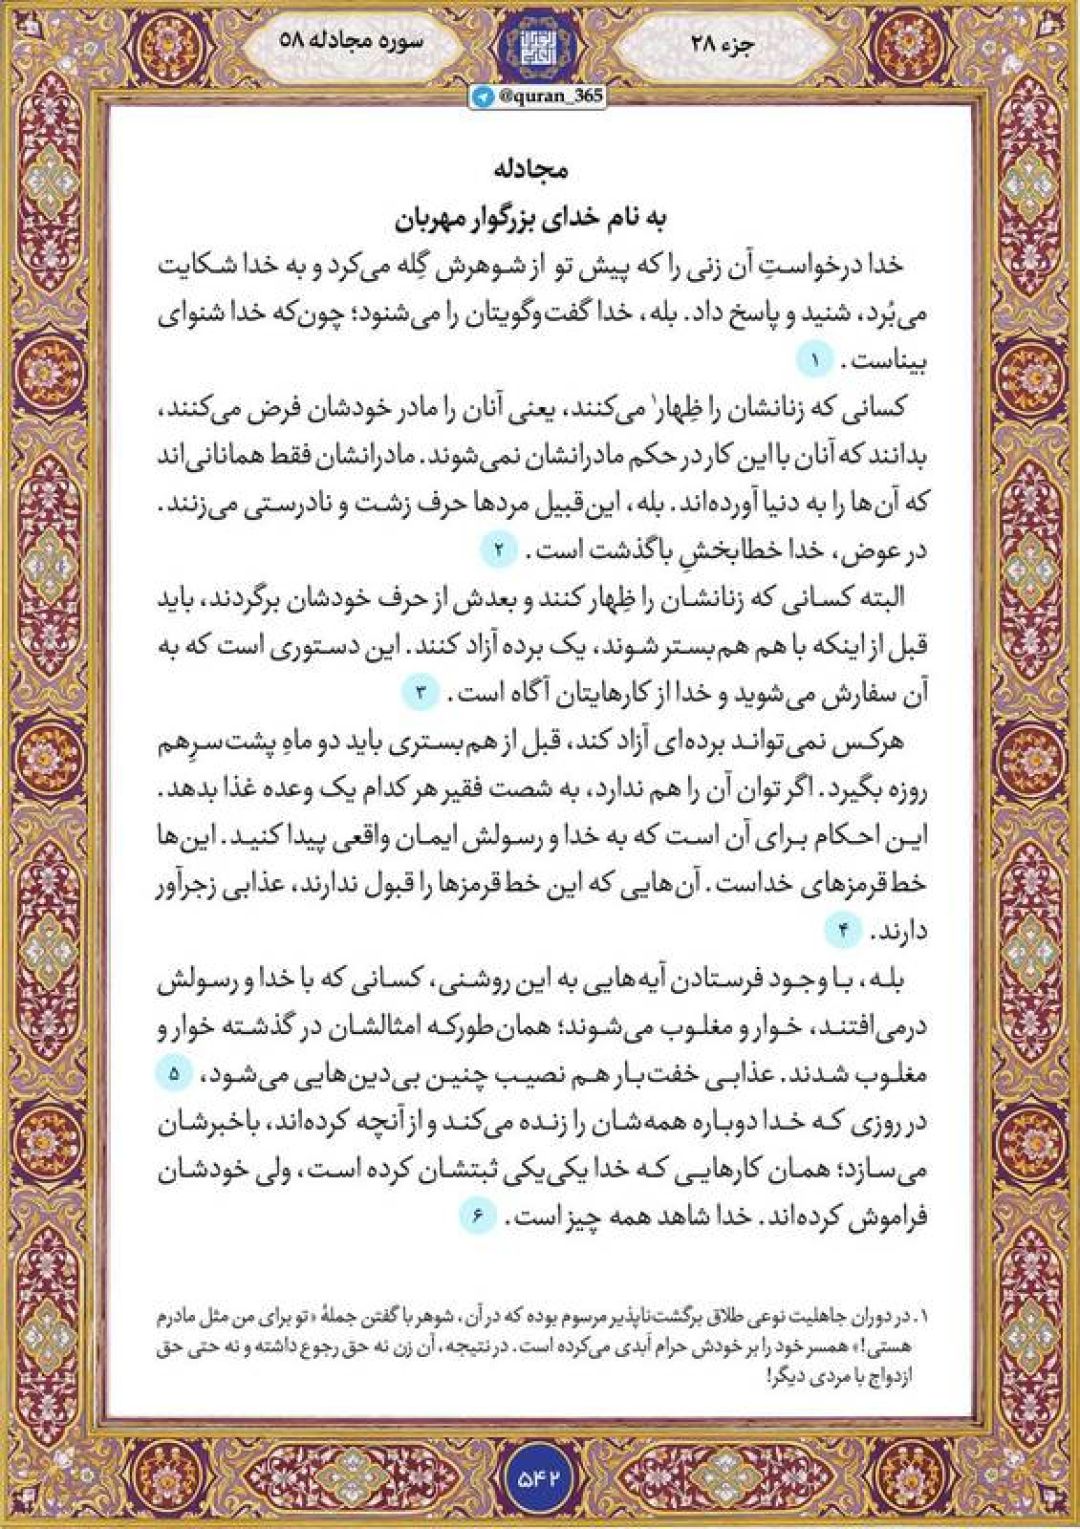 جزء ۲۸
سوره مجادله ۵۸
@quran_365
مجادله
به نام خدای بزرگوار مهربان
خدا درخواستِ آن زنی را که پیش تو از شوهرش گِله می‌کرد و به خدا شکایت
می‌بُرد، شنید و پاسخ داد. بله، خدا گفت‌وگویتان را می‌شنود؛ چون‌که خدا شنوای
بیناست. ۱
کسانی که زنانشان را ظِهار۱ می‌کنند، یعنی آنان را مادر خودشان فرض می‌کنند،
بدانند که آنان با این کار در حکم مادرانشان نمی‌شوند. مادرانشان فقط همانانی‌اند
که آن‌ها را به دنیا آورده‌اند. بله، این‌قبیل مردها حرف زشت و نادرستی می‌زنند.
در عوض، خدا خطابخشِ باگذشت است. ۲
البته کسانی که زنانشان را ظِهار کنند و بعدش از حرف خودشان برگردند، باید
قبل از اینکه با هم هم‌بستر شوند، یک برده آزاد کنند. این دستوری است که به
آن سفارش می‌شوید و خدا از کارهایتان آگاه است. ۳
هرکس نمی‌تواند برده‌ای آزاد کند، قبل از هم‌بستری باید دو ماهِ پشت‌سرِهم
روزه بگیرد. اگر توان آن را هم ندارد، به شصت فقیر هر کدام یک وعده غذا بدهد.
این احکام برای آن است که به خدا و رسولش ایمان واقعی پیدا کنید. این‌ها
خط‌قرمزهای خداست. آن‌هایی که این خط‌قرمزها را قبول ندارند، عذابی زجرآور
دارند. ۴
بله، با وجود فرستادن آیه‌هایی به این روشنی، کسانی که با خدا و رسولش
درمی‌افتند، خوار و مغلوب می‌شوند؛ همان‌طورکه امثالشان در گذشته خوار و
مغلوب شدند. عذابی خفت‌بار هم نصیب چنین بی‌دین‌هایی می‌شود، ۵
در روزی که خدا دوباره همه‌شان را زنده می‌کند و از آنچه کرده‌اند، باخبرشان
می‌سازد؛ همان کارهایی که خدا یکی‌یکی ثبتشان کرده است، ولی خودشان
فراموش کرده‌اند. خدا شاهد همه چیز است. ۶
۱. در دوران جاهلیت نوعی طلاق برگشت‌ناپذیر مرسوم بوده که در آن، شوهر با گفتن جملهٔ «تو برای من مثل مادرم
هستی!» همسر خود را بر خودش حرام اَبدی می‌کرده است. درنتیجه، آن زن نه حق رجوع داشته و نه حتی حق
ازدواج با مردی دیگر!
۵۴۲